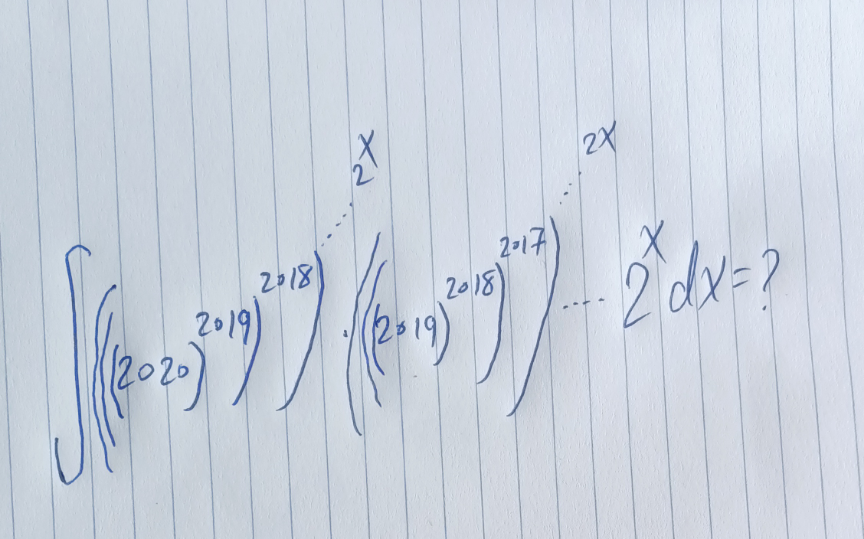 ∫(((2020)^2019)^2018)^⋰^2^x · (((2019)^2018)^2017)^⋰^2x .... 2^x dx = ?